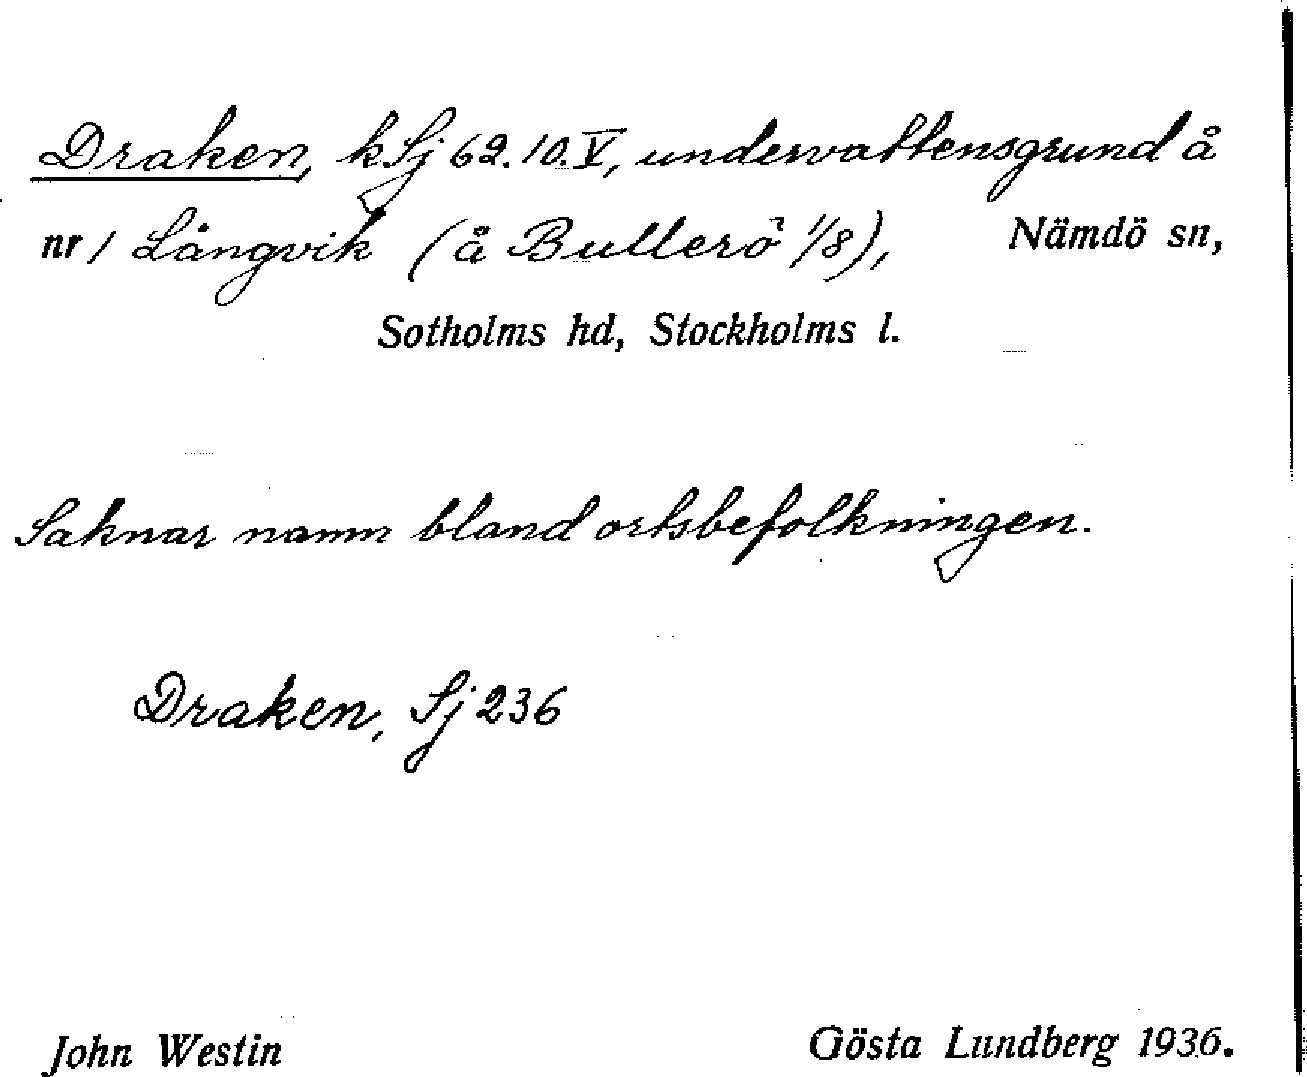 Draken, k Sj 62.10.V, undervattensgrund å
nr 1 Långvik (å Bullerö 1/8), Nämdö sn,
Sotholms hd, Stockholms l.
Saknar namn bland ortsbefolkningen.
Draken, Sj 236
John Westin Gösta Lundberg 1936.